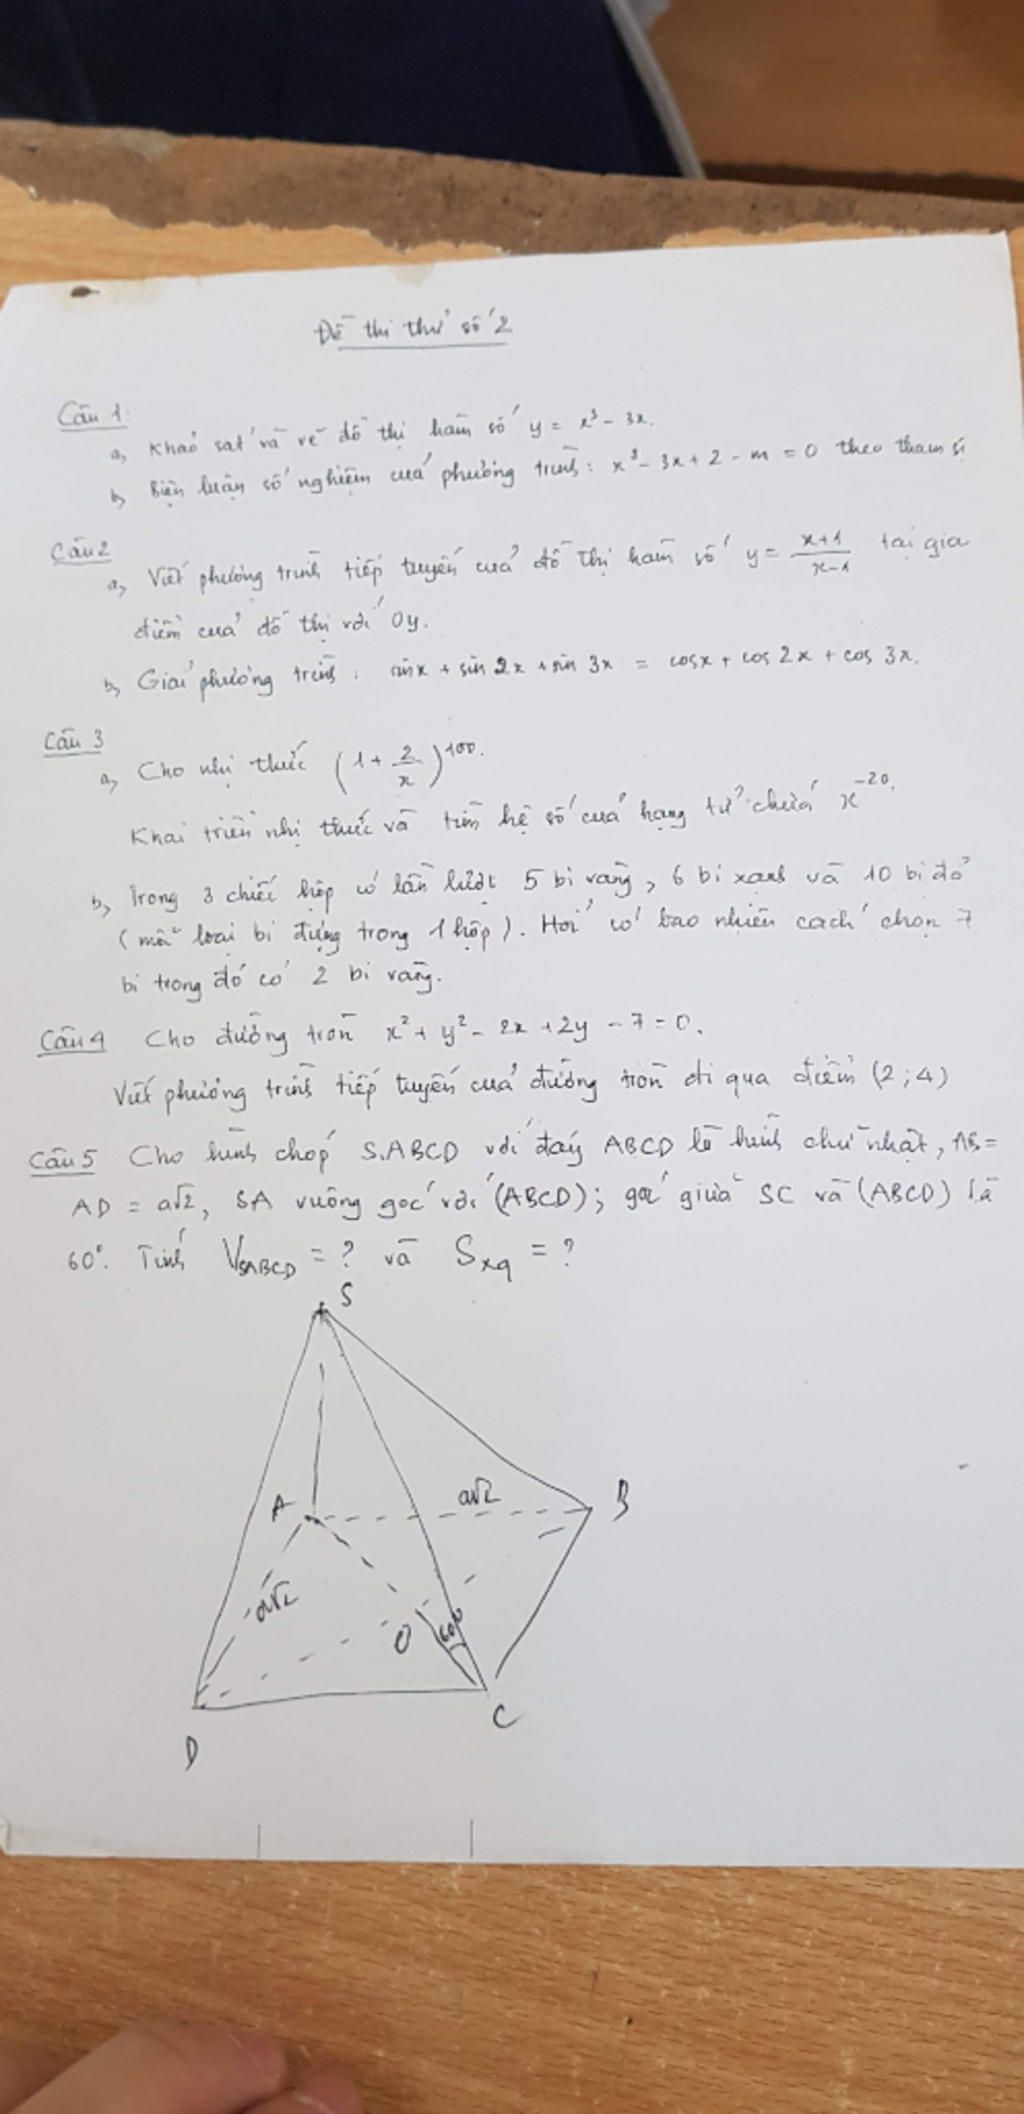 Đề thi thử số 2
Câu 1:
a, Khảo sát và vẽ đồ thị hàm số y = x³ - 3x.
b, Biện luận số nghiệm của phương trình: x³ - 3x + 2 - m = 0 theo tham số
Câu 2
a, Viết phương trình tiếp tuyến của đồ thị hàm số y = (x+1)/(x-1) tại giao
điểm của đồ thị với Oy.
b, Giải phương trình: sinx + sin 2x + sin 3x = cosx + cos 2x + cos 3x.
Câu 3
a, Cho nhị thức (1 + 2/x)¹⁰⁰.
Khai triển nhị thức và tìm hệ số của hạng tử chứa x⁻²⁰.
b, Trong 3 chiếc hộp có lần lượt 5 bi vàng, 6 bi xanh và 10 bi đỏ
(mỗi loại bi đựng trong 1 hộp). Hỏi có bao nhiêu cách chọn 7
bi trong đó có 2 bi vàng.
Câu 4 Cho đường tròn x² + y² - 2x + 2y - 7 = 0.
Viết phương trình tiếp tuyến của đường tròn đi qua điểm (2; 4)
Câu 5 Cho hình chóp S.ABCD với đáy ABCD là hình chữ nhật, AB =
AD = a√2, SA vuông góc với (ABCD); góc giữa SC và (ABCD) là
60°. Tính V_SABCD = ? và S_xq = ?
S
A a√2 B
a√2
O 60°
C
D